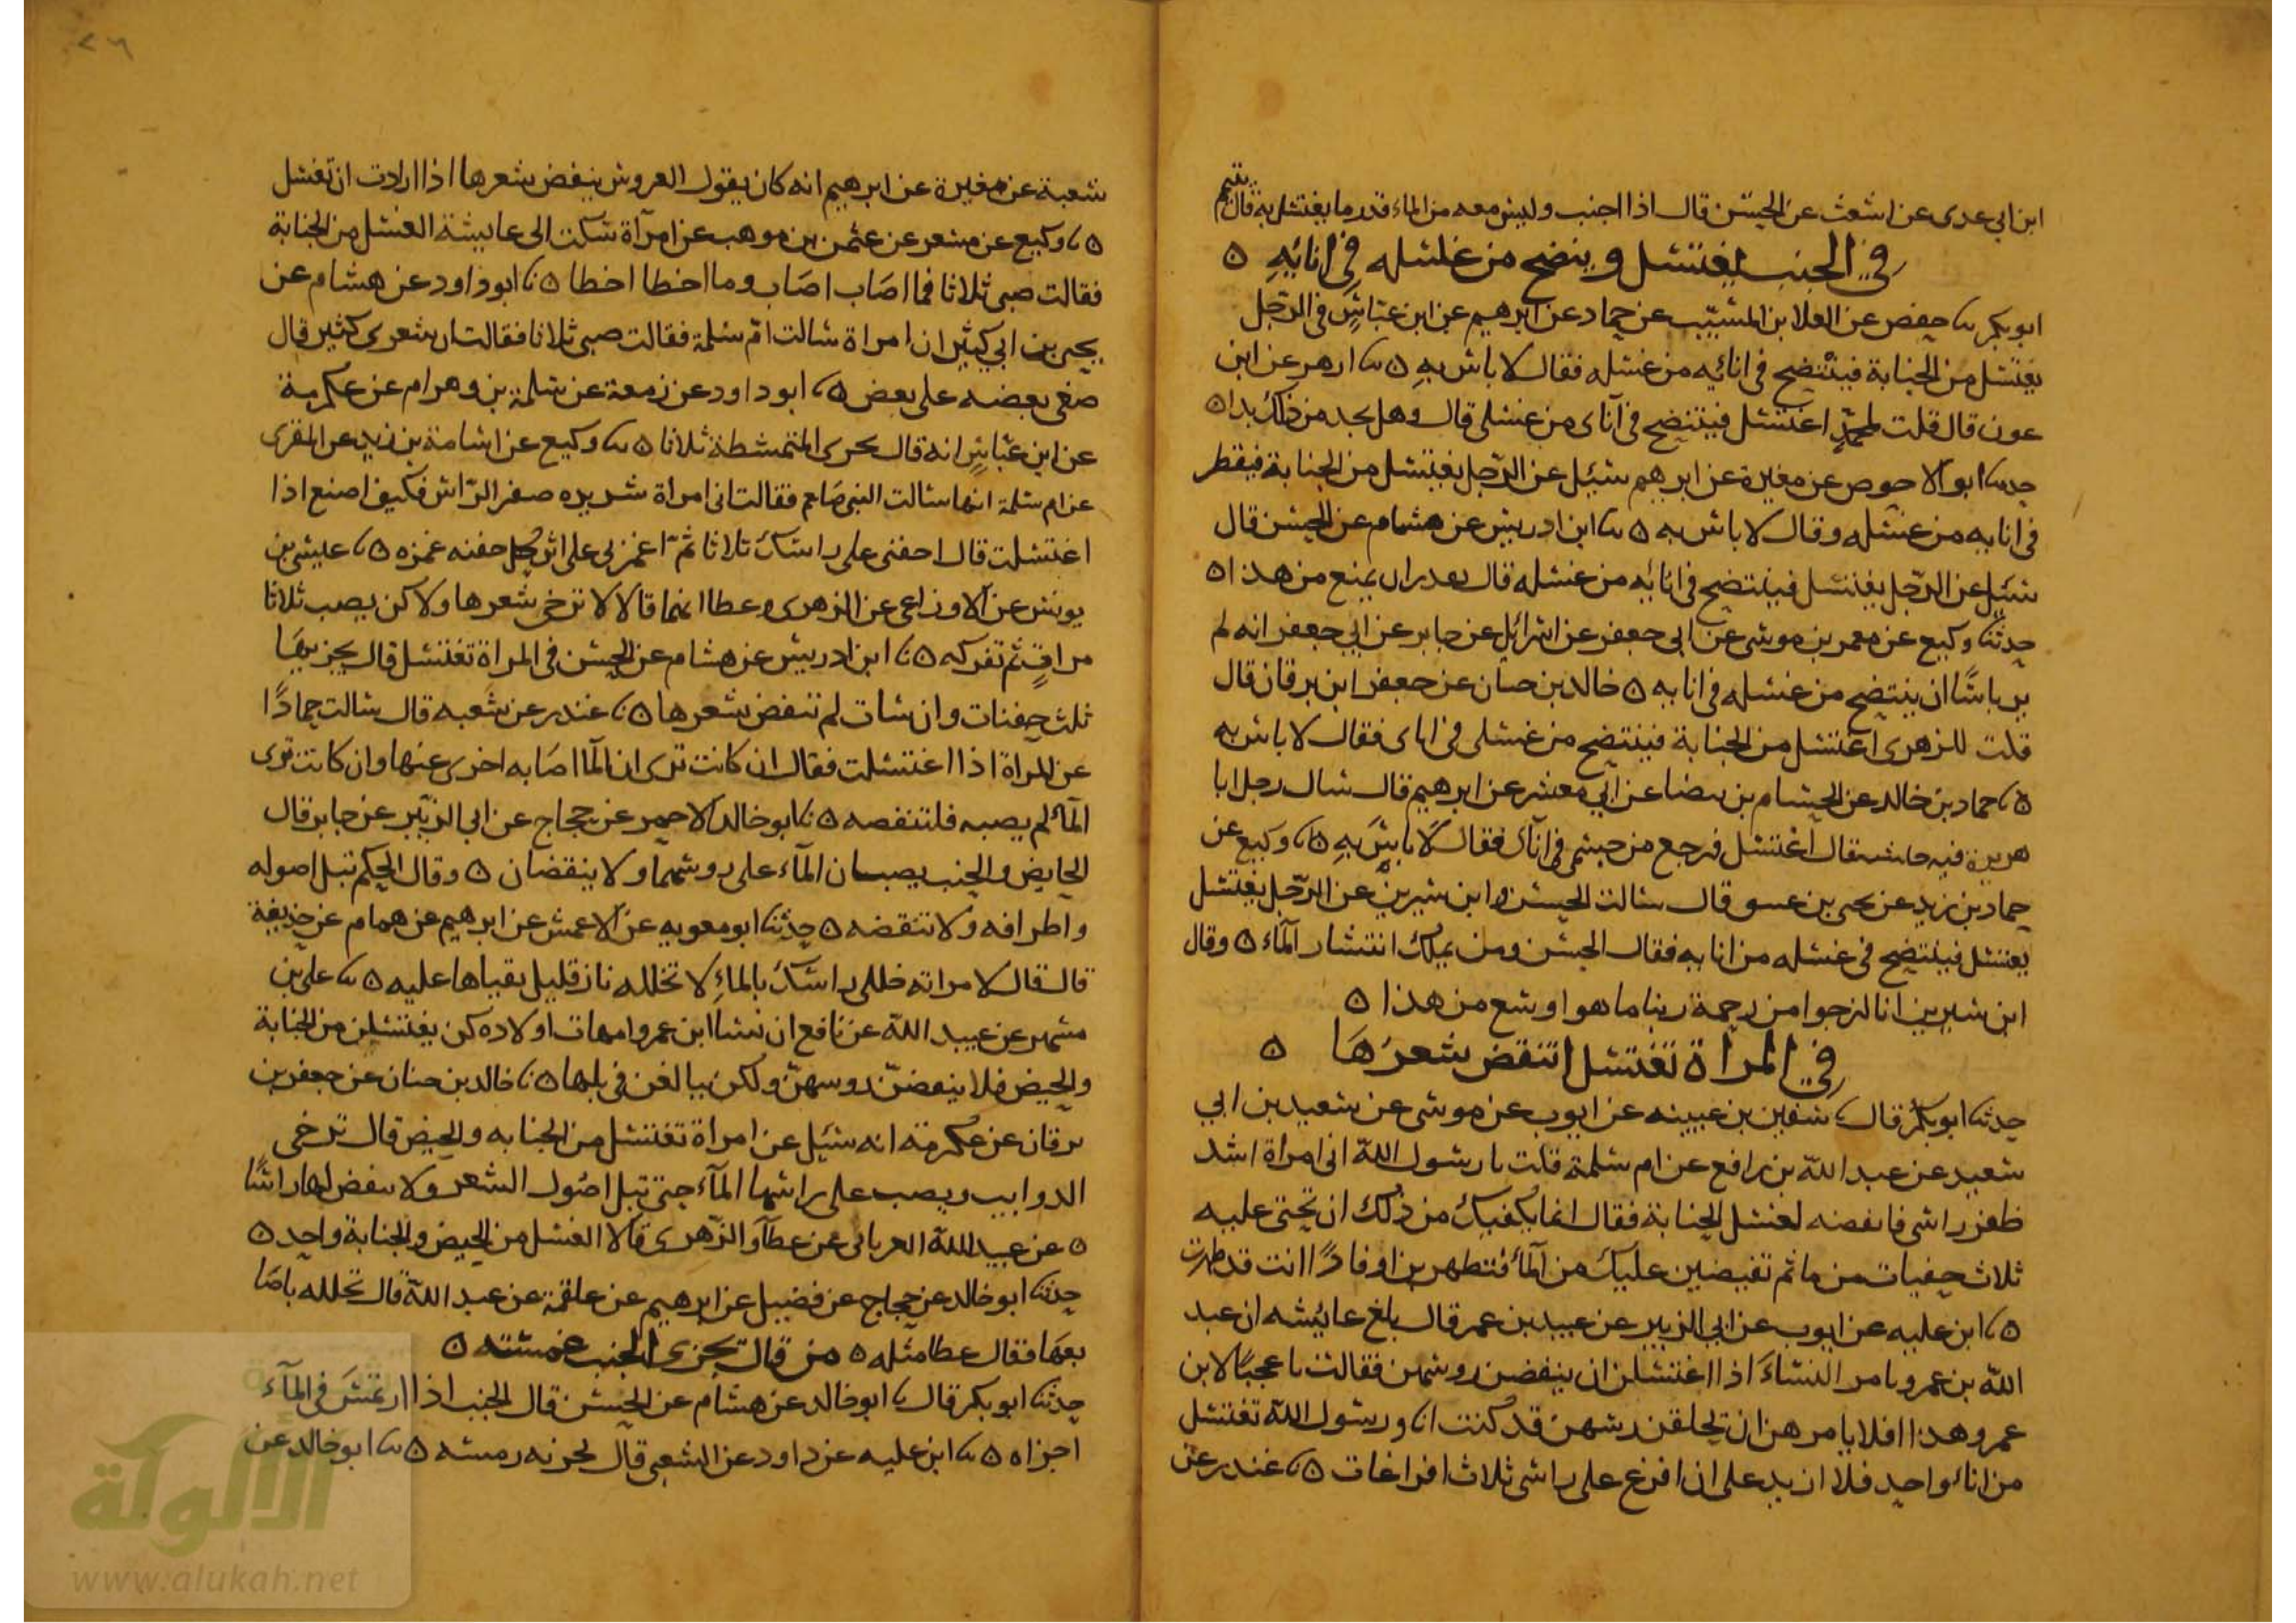 ابن ابي عدى عن اشعث عن الحسن قال اذا اجنب وليس معه من الماء قدر ما يغتسل به قال يتيمم
في الجنب يغتسل وينضح من غسله في انائهِ ٥
ابو بكر نا حفص عن العلا بن المسيّب عن حماد عن ابرهيم عن ابن عبّاسٍ في الرّجل
يغتسل من الجنابة فينتضح في انائيه من غسله فقال لا باس بهِ ٥ نا ازهر عن ابن
عون قال قلت لمحمّدٍ اغتسل فينتضح في آناى من غسلى قال وهل يجد من ذلك بدا ٥
حدثنا ابو الاحوص عن مغيرة عن ابرهيم سُئِل عن الرّجل يغتسل من الجنابة فيقطر
في انايه من غسله وقال لا باس به ٥ نا ابن ادريس عن هشام عن الحسن قال
سُئِل عن الرّجل يغتسل فينتضح في انائه من غسله قال يعدران يمنع من هذا ٥
حدثنا وكيع عن معمر بن موسى عن ابى جعفر عن اسرائِل عن جابر عن ابي جعفر انه لم
ير باسًا ان ينتضح من غسله في انايه ٥ خالد بن حيان عن جعفر ابن برقان قال
قلت للزهرى اغتسل من الجنابة فينتضح من غسلى في اناى فقال لا باس به
٥ نا حماد بن خالد عن الحسام بن بيضا عن ابي معشر عن ابرهيم قال سال رجل ابا
هريرة فيه فقال اغتسل فرجع من جسمى في اناك فقال لا باسَ بهِ ٥ نا وكيع عن
حماد بن زيد عن يحيى بن عسو قال سالت الحسن وابن سيرين عن الرّجل يغتسل
يغتسل فينتضح في غسله من انايه فقال الحسن ومن يملك انتشار المآء ٥ وقال
ابن سيرين انا لنرجوا من رحمة ربنا ما هو اوسع من هذا ٥
في المراة تغتسل اتنقض شعرَهَا ٥
حدثنا ابو بكر قال نا سفين بن عيينه عن ايوب عن موسى عن سعيد بن ابي
سعيد عن عبد اللّه بن رافع عن ام سلمة قلت يا رسول اللّه انى امراة اشد
ظفر راسى فانقضه لغسل الجنابة فقال انما يكفيك من ذلك ان تحثى عليه
ثلاث حفيات من ما ثم تفيضين عليك من المآء فتطهرين او فاذًا انت قد طهرت
٥ نا ابن عليه عن ايوب عن ابي الزبير عن عبيد بن عمر قال بلغ عائِشه ان عبد
اللّه بن عمرو يامر النسَاءَ اذا اغتسلن ان ينقضن روسهن فقالت يا عجبًا لابن
عمرو هذا افلا يامرهن ان يحلقن رسهن قد كنت انا ورسول اللّه تغتسل
من اناءٍ واحد فلا ازيد على ان افرغ على راسى ثلاث افراغات ٥ نا غندر عن
شعبة عن مغيرة عن ابرهيم انه كان يقول العروس ينقض شعرها اذا ارادت ان تغتسل
٥ نا وكيع عن مسعر عن عثمن بن موهب عن امرآة شكت الى عايشة الغسل من الجنابة
فقالت صبى ثلاثا فما اصَاب اصَاب وما اخطا اخطا ٥ نا ابو داود عن هشام عن
يحيى بن ابي كثير ان امراة سالت امّ سلمة فقالت صبى ثلاثا فقالت ان شعرى كثير قال
ضغى بعضه على بعض ٥ نا ابو داود عن زمعة عن سلمة بن وهرام عن عكرمة
عن ابن عبّاسٍ انه قال يجزى الممتشطة ثلاثا ٥ نا وكيع عن اسامة بن زيد عن المقبرى
عن ام سلمة انها سالت النبى صَلعم فقالت انى امراة شديده صفر الرّاس فكيف اصنع اذا
اغتسلت قال احفنى على راسك ثلاثا ثمّ اغمزى على اثر كل حفنه غمزه ٥ نا عيسى بن
يونس عن الاوزاعى عن الزهرى وعطا انهما قالا لا ترخى شعرها ولاكن يصب ثلاثا
مراتٍ ثم تفركه ٥ نا ابن ادريس عن هشام عن الحسن في المراة تغتسل قال يجزيهَا
ثلث حفنات وان شات لم تنقض شعرها ٥ نا غندر عن شعبه قال سالت حمادًا
عن المراة اذا اغتسلت فقال ان كانت ترى ان المآ اصَابه اجزى عنها وان كانت ترى
المآءَ لم يصبه فلتنقضه ٥ نا ابو خالد الاحمر عن حجاج عن ابي الزبير عن جابر قال
الحايض والجنب يصبان المآء على روسهما ولا ينقضان ٥ وقال الحكم تبل اصوله
واطرافه ولا تنقضه ٥ حدثنا ابو معويه عن الاعمش عن ابرهيم عن همام عن حذيفة
قال قال لامراته خللى راسك بالماءِ لا تخلله نار قليل بقياها عليه ٥ نا على بن
مسهر عن عبيد اللّه عن نافع ان نسا ابن عمر وامهات اولاده كن يغتسلن من الجنابة
والحيض فلا ينقضنّ روسهنّ ولكن يبالغن في بلها ٥ نا خالد بن حيان عن جعفر بن
برقان عن عكرمة انه سئِل عن امراة تغتسل من الجنابه والحيض قال ترخى
الدوايب ويصب على راسها المآء حتى تبل اصُول الشعر ولا ينقض لها راسًا
٥ عن عبيد اللّه العربانى عن عطآ والزّهرى قالا الغسل من الحيض والجنابة واحد ٥
حدثنا ابو خالد عن حجاج عن فضيل عن ابرهيم عن علقمة عن عبد اللّه قال تخلله باصَا
بعهَا فقال عطا مثله ٥ من قال يجزى الجنب غمسته ٥
حدثنا ابو بكر قال نا ابو خالد عن هشام عن الحسن قال الجنب اذا ارتمسَ في المآءِ
اجزاه ٥ نا ابن عليه عن داود عن الشعبى قال يجزئه رمسه ٥ نا ابو خالد عن
الألوكة
www.alukah.net